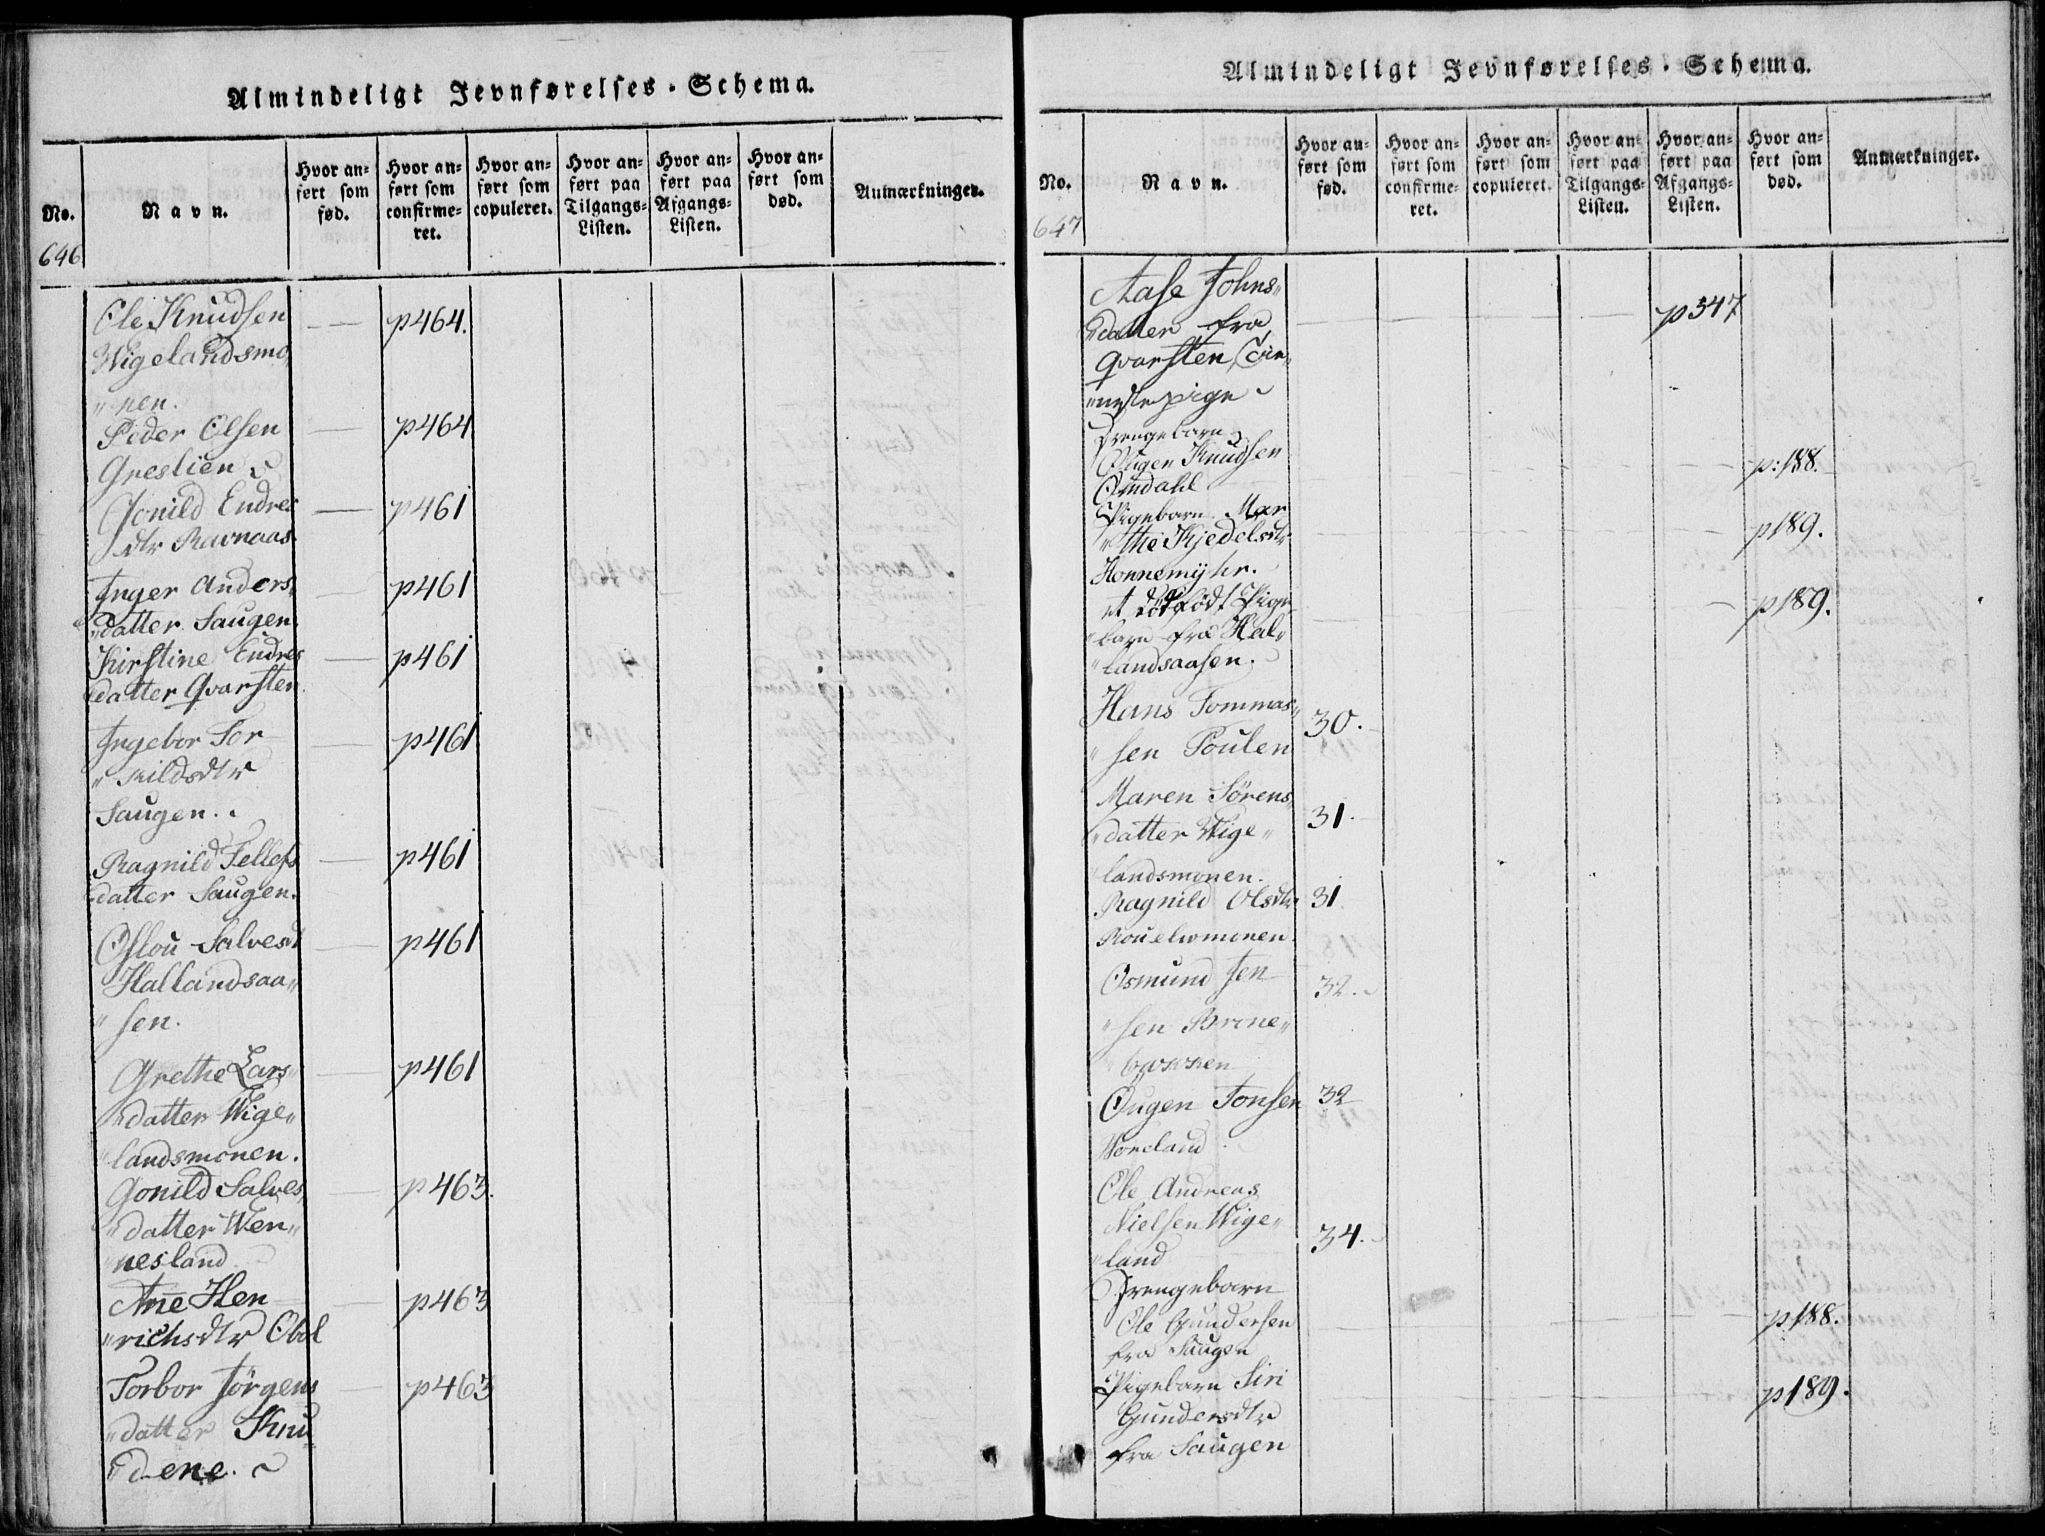 Almindeligt Jevnførelses-Schema.
No. Navn. Hvor anført som fød. Hvor anført som confirmeret. Hvor anført som copuleret. Hvor anført paa Tilgangs-Listen. Hvor anført paa Afgangs-Listen. Hvor anført som død. Anmærkninger.
646
Ole Knudsen p464.
Wigelandsmo„
„nen.
Peder Olsen p464
Greslien
Gonild Endres p461
dtr Ravnaas
Inger Anders„ p461
„datter Saugen.
Kirstine Endres p461
„datter Qvarsten
Ingebor Ter p461
„kildsdtr
Saugen.
Ragnild Tellefs p461
datter Saugen.
Oslou Salvesd p461
Hallandsaa„
„sen.
Grethe Lars„ p461
„datter Wige„
„landsmonen.
Gonild Salves p463.
„datter Wen„
„nesland
Ane Hen p463
„richsdtr Obel
Torbor Jørgens p463
„datter Knu
„dene.
Almindeligt Jevnførelses-Schema.
No. Navn. Hvor anført som fød. Hvor anført som confirmeret. Hvor anført som copuleret. Hvor anført paa Tilgangs-Listen. Hvor anført paa Afgangs-Listen. Hvor anført som død. Anmærkninger.
647
Aase Johns„ p347
„datter fra
Qvarsten
„nestepige
Drengebarn
Ougen Knudsen p:188.
Omdahl
Pigebarn Mar p189.
„the Kjedelsdtr
Honnemyhr.
et dødfødt Pige p189.
„barn fra Hal„
„landsaasen.
Hans Tommas„ 30.
„sen Poulen
Maren Sørens„ 31.
„datter Wige„
landsmonen.
Ragnild Olsdtr 31
Osmund Jen 32.
„sen Brone„
„bakken
Ougen Jonsen 32
Woreland
Ole Andreas
Nielsen Wige„ 34.
„land
Drengebarn
Ole Gundersen p188.
fra Saugen
Pigebarn Siri p189.
Gundersdtr
fra Saugen